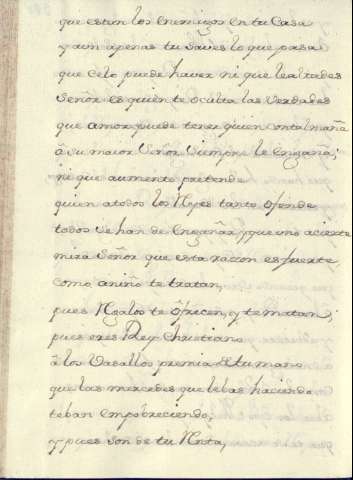 que estan los Enemigos en tu Casa
y aun apenas tu saves lo que pasa
que Celo puede haver ni que lealtades
Señor es quien te oculta las verdades
que amor puede tener quien con tal maña
â su maior Señor siempre le engaña;
ni que aumento pretende
quien a todos los Reyes tanto ofende
todos se han de Engañar y que uno acierte
mira Señor que esta racion es fuerte
como a niño te tratan,
pues Regalos te ôfrecen, y te matan;
pues eres Rey Christiano
â los Vasallos premia de tu mano
que las mercedes que le bas haciendo
te ban empobreciendo;
y pues son de tu Renta,